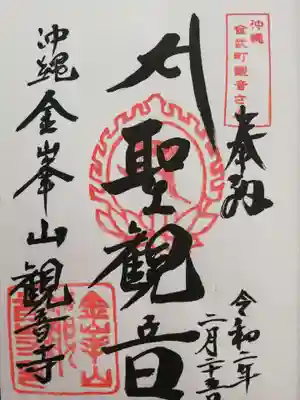 沖縄
金武町観音さ
奉拝
令和二年
二月二十五日
聖観音
沖縄 金峯山 観音寺